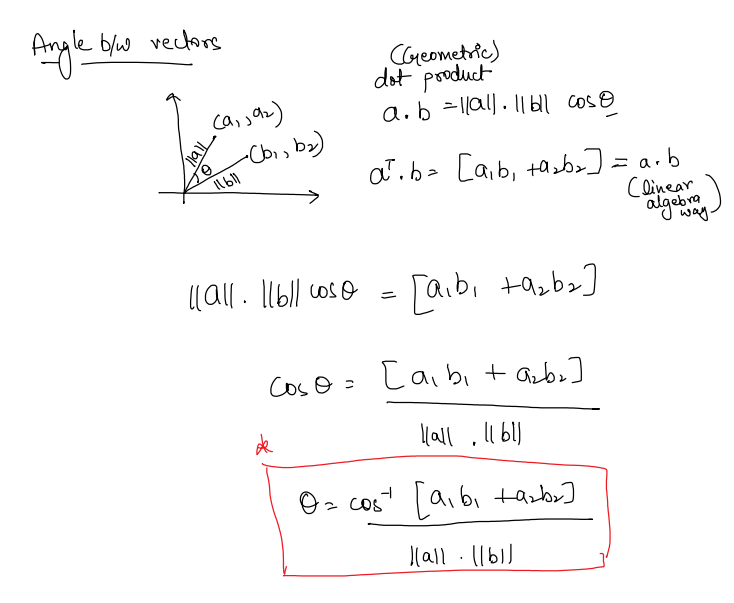 Angle b/w vectors
(Geometric)
dot product
a . b = ||a|| . ||b|| cos θ
(a₁, a₂)
(b₁, b₂)
||a||
θ
||b||
aᵀ . b = [a₁b₁ + a₂b₂] = a . b
(linear
algebra
way)
||a|| . ||b|| cos θ = [a₁b₁ + a₂b₂]
cos θ = [a₁b₁ + a₂b₂]
||a|| . ||b||
*
θ = cos⁻¹ [a₁b₁ + a₂b₂]
||a|| . ||b||